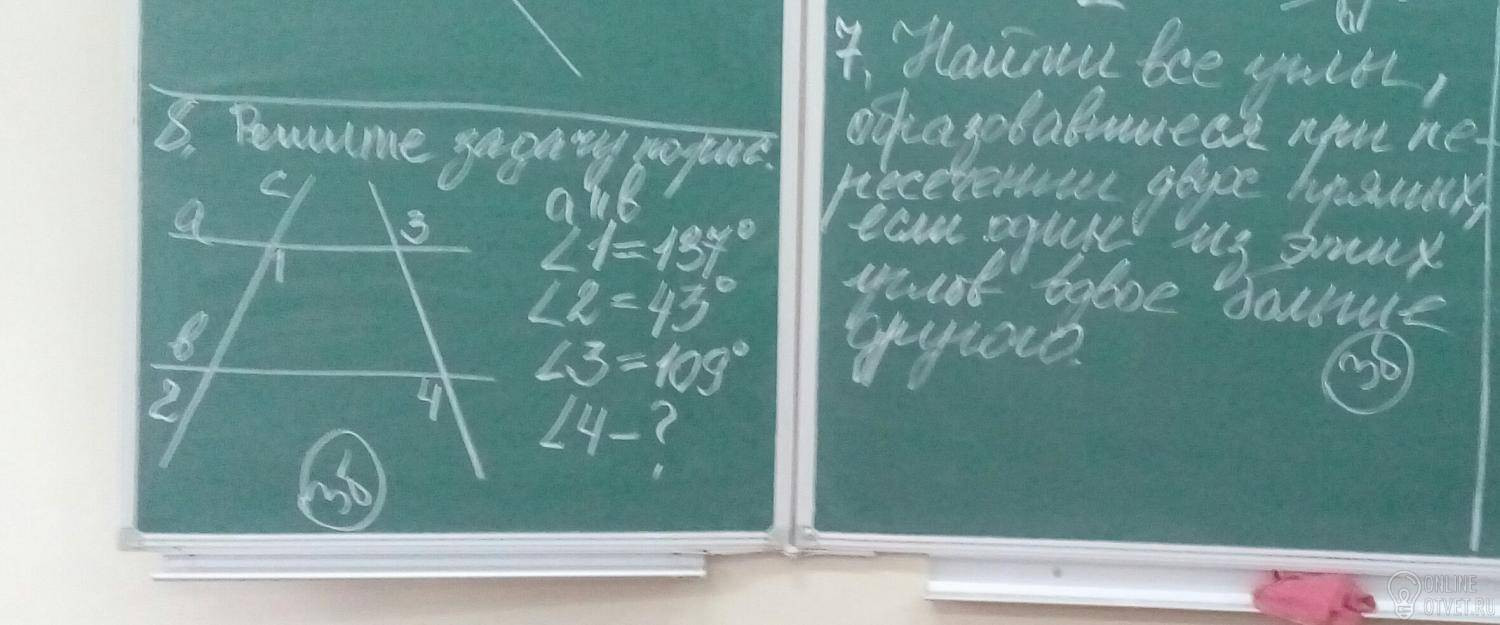 8. Решите задачу по рис.
с
а
3
1
в
2
4
а || в
∠1 = 137°
∠2 = 43°
∠3 = 109°
∠4 – ?
3б
7. Найти все углы,
образовавшиеся при пе-
ресечении двух прямых,
если один из этих
углов вдвое больше
другого.
3б
ONLINE
OTVET.RU